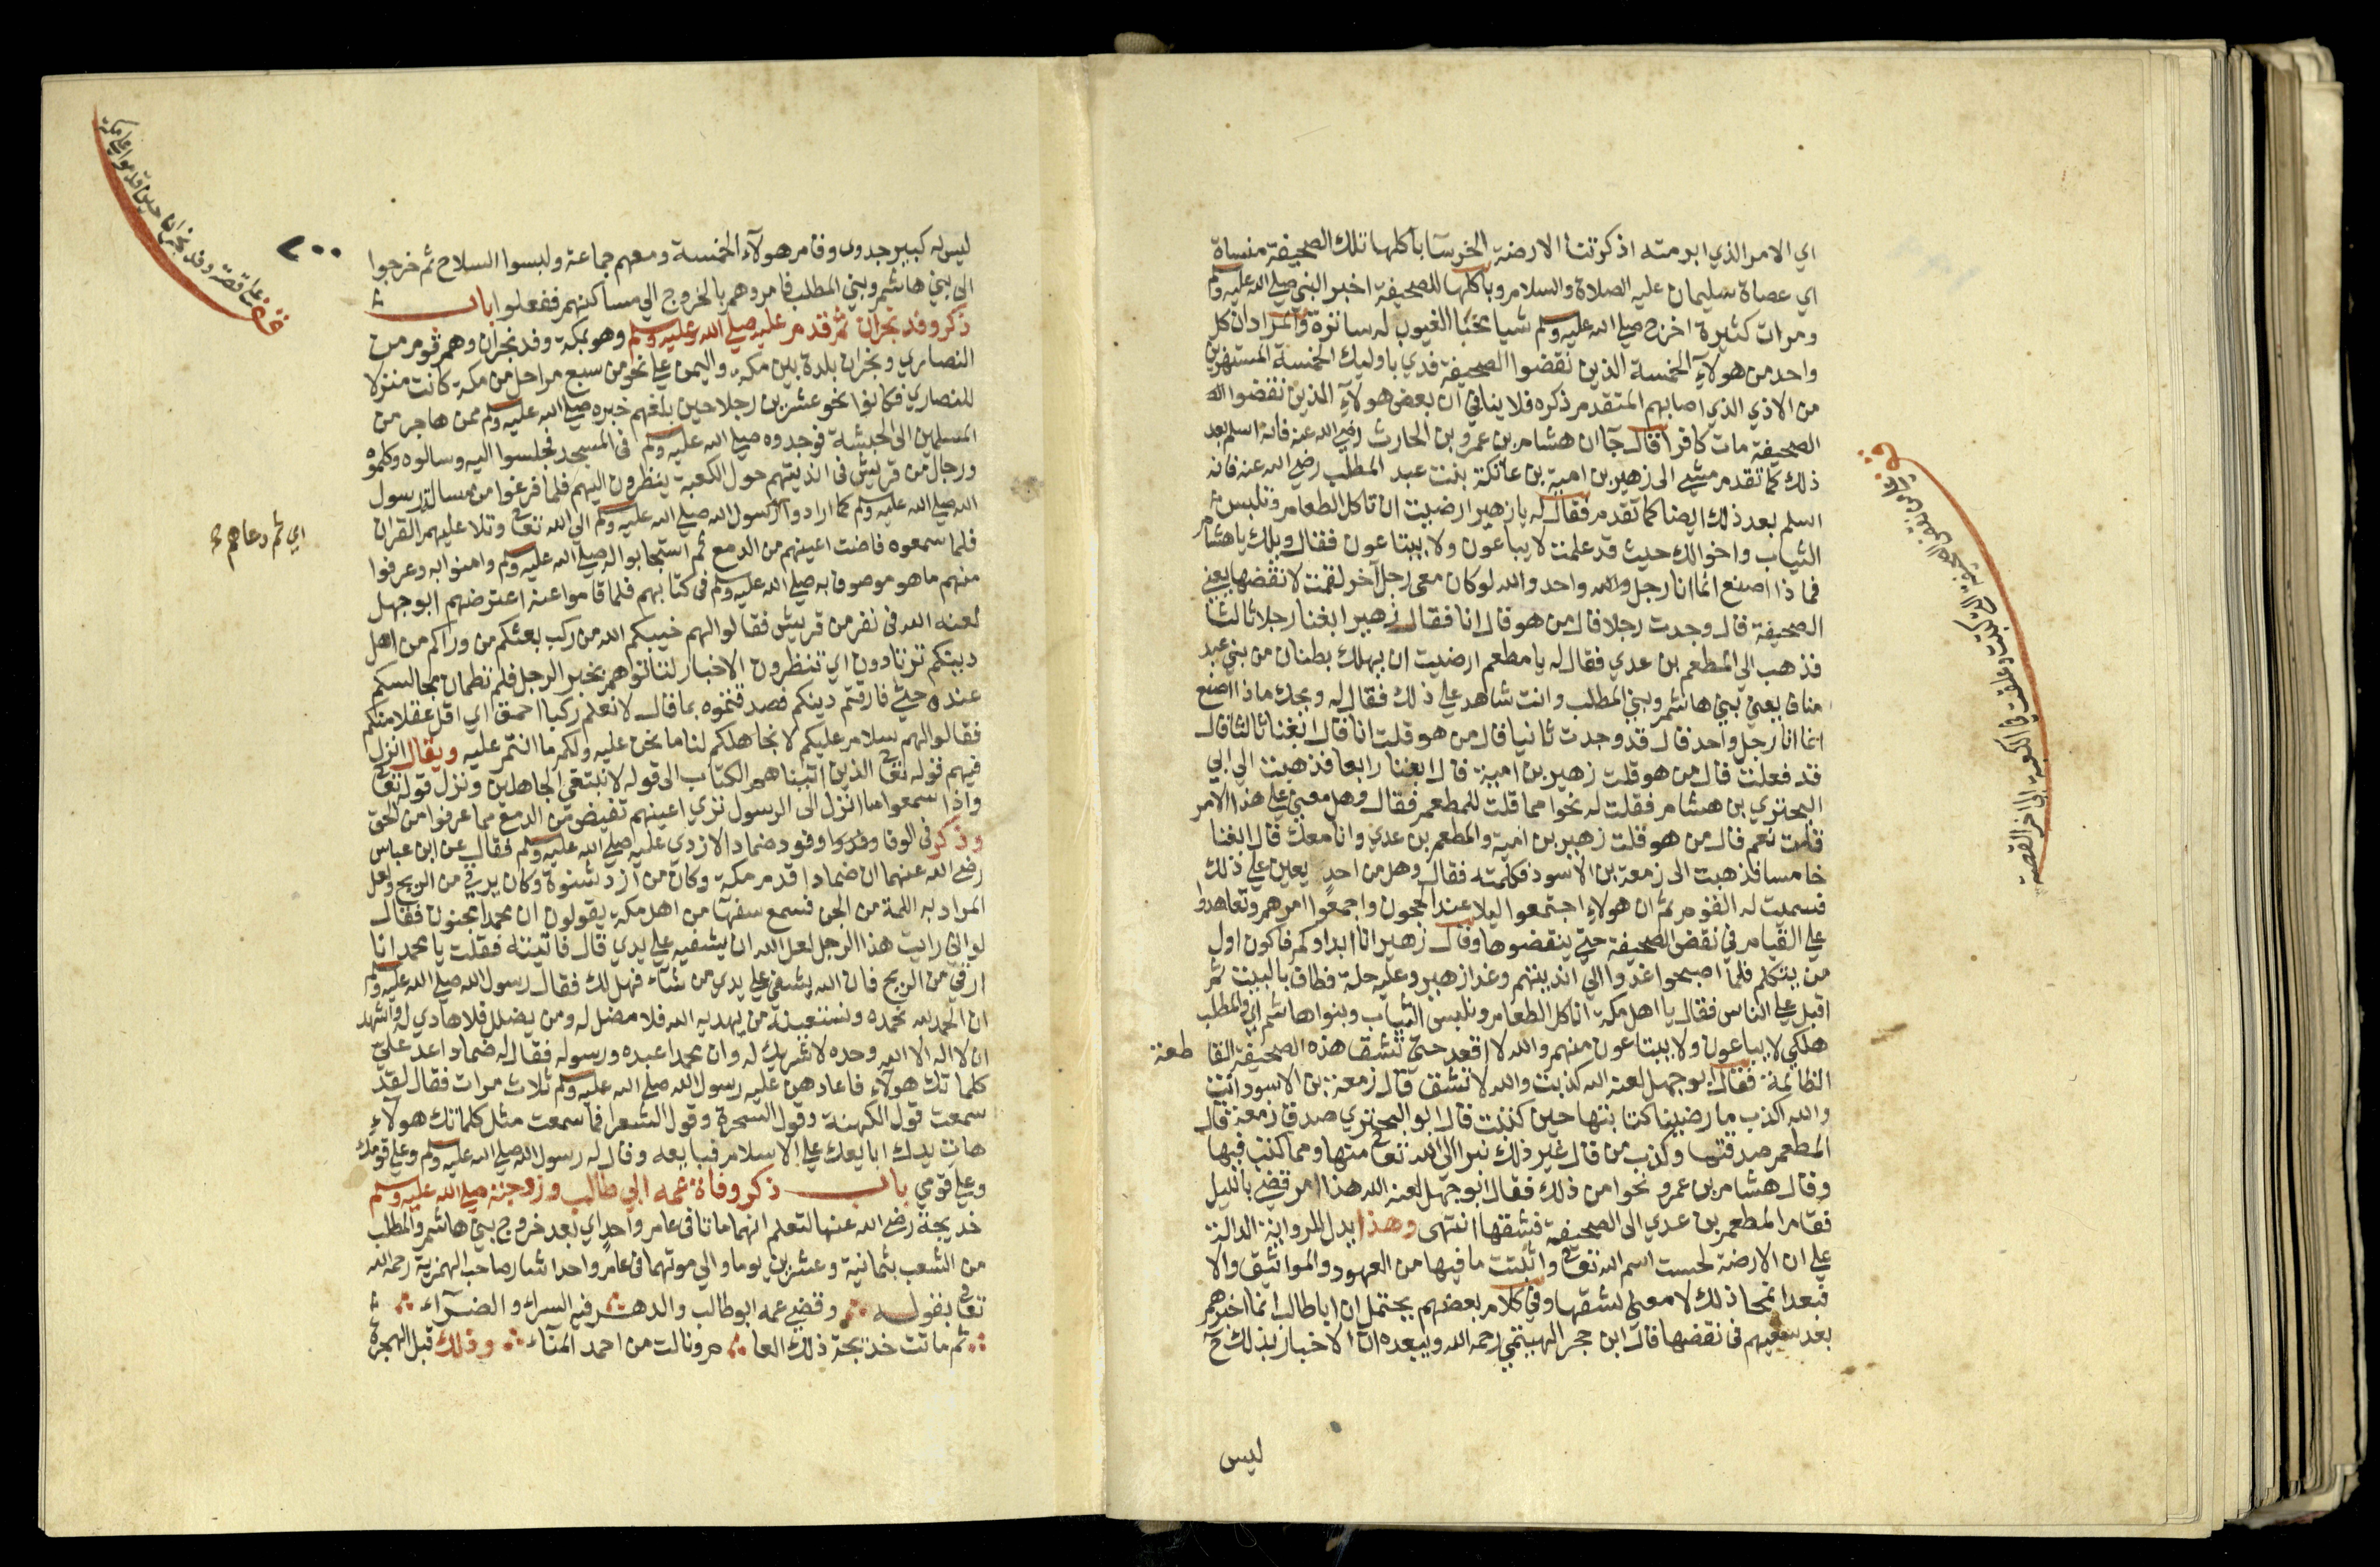 اي الامر الذي ابرمته اذ ذكرتنا الارضة الخرسا باكلها تلك الصحيفة منساة
اي عصاة سليمان عليه الصلاة والسلام وباكلها للصحيفة اخبر النبي صلى الله عليه وسلم
ومرات كثيرة اخرج صلى الله عليه وسلم شيا مخبا الغيوب له ساترة والمراد ان كل
واحد من هولآء الخمسة الذين نقضوا الصحيفة فدي باوليك الخمسة المستهزين
من الاذي الذي اصابهم المتقدم ذكره فلا ينافي ان بعض هولآء الذين نقضوا
الصحيفة مات كافرا قال جا ان هشام بن عمرو بن الحارث رضي الله عنه فانه اسلم بعد
ذلك كما تقدم مشي الى زهير بن امية بن عاتكة بنت عبد المطلب رضي الله عنه فانه
اسلم بعد ذلك ايضا كما تقدم فقال له يا زهير ارضيت ان تاكل الطعام وتلبس
الثياب واخوالك حيث قد علمت لا يباعون ولا يبتاعون فقال ويلك يا هشام
فما ذا اصنع انما انا رجل واحد والله لو كان معي رجل آخر لقمت لانقضها يعني
الصحيفة قال وجدت رجلا قال من هو قال انا فقال زهير ابغنا رجلا ثالثا
فذهب الي المطعم بن عدي فقال له يا مطعم ارضيت ان يهلك بطنان من بني عبد
مناف يعني بني هاشم وبني المطلب وانت شاهد علي ذلك فقال له ويحك ماذا اصنع
انما انا رجل واحد قال قد وجدت ثانيا قال من هو قلت انا قال ابغنا ثالثا قال
قد فعلت قال من هو قلت زهير بن امية قال ابغنا رابعا فذهبت الي ابي
البختري بن هشام فقلت له نحوا مما قلت للمطعم فقال وهل معين علي هذا الامر
قلت نعم قال من هو قلت زهير بن امية والمطعم بن عدي وانا معك قال ابغنا
خامسا فذهبت الى زمعة بن الاسود فكلمته فقال وهل من احد يعين علي ذلك
فسميت له القوم ثم ان هولاء اجتمعوا ليلا عند الحجون واجمعوا امرهم وتعاهدوا
علي القيام في نقض الصحيفة حتي ينقضوها وقال زهير انا ابداوكم فاكون اول
من يتكلم فلما اصبحوا غدوا الي انديتهم وغدا زهير وعليه حلة فطاف بالبيت ثم
اقبل علي الناس فقال يا اهل مكة اناكل الطعام ونلبس الثياب وبنوا هاشم اي والمطلب
هلكي لا يباعون ولا يبتاعون منهم والله لا اقعد حتي تشق هذه الصحيفة القاطعة
الظالمة فقال ابو جهل لعنه الله كذبت والله لا تشق قال زمعة بن الاسود انت
والله اكذب ما رضينا كتابتها حين كتبت قال ابو البختري صدق زمعة قال
المطعم صدقتما وكذب من قال غير ذلك نبرا الى الله تعالى منها ومما كتب فيها
وقال هشام بن عمرو نحوا من ذلك فقال ابو جهل لعنه الله هذا امر قضي بالليل
فقام المطعم بن عدي الى الصحيفة فشقها انتهى وهذا يدل للرواية الدالة
علي ان الارضة لحست اسم الله تعالى واثبتت ما فيها من العهود والمواثيق والا
فبعد انمحا ذلك لا معني لشقها وفي كلام بعضهم يحتمل ان ابا طالب انما اخبرهم
بعد سعيهم في نقضها قال ابن حجر الهيتمي رحمه الله ويبعده ان الاخبار بذلك ح
ليس
٢٠٠
ليس له كبير جدوى وقام هولآء الخمسة ومعهم جماعة ولبسوا السلاح ثم خرجوا
الى بني هاشم وبني المطلب فامروهم بالخروج الي مساكنهم ففعلوا باب
ذكر وفد نجران ثم قدم عليه صلى الله عليه وسلم وهو بمكة وفد نجران وهم قوم من
النصاري ونجران بلدة بين مكة واليمن علي نحو من سبع مراحل من مكة كانت منزلا
للنصاري فكانوا نحو عشرين رجلا حين بلغهم خبره صلى الله عليه وسلم ممن هاجر من
المسلمين الى الحبشة فوجدوه صلى الله عليه وسلم في المسجد فجلسوا اليه وسالوه وكلموه
ورجال من قريش في انديتهم حول الكعبة ينظرون اليهم فلما فرغوا من مسالة رسول
الله صلى الله عليه وسلم كما ارادوا رسول الله صلى الله عليه وسلم الي الله تعالى وتلا عليهم القران
اي ثم دعاهم
فلما سمعوه فاضت اعينهم من الدمع ثم استجابوا له صلى الله عليه وسلم وامنوا به وعرفوا
منهم ما هو موصوف به صلى الله عليه وسلم في كتابهم فلما قاموا عنه اعترضهم ابو جهل
لعنه الله في نفر من قريش فقالوا لهم خيبكم الله من ركب بعثكم من وراكم من اهل
دينكم ترتادون اي تنظرون الاخبار لتاتوهم بخبر الرجل فلم تطمان مجالسكم
عنده حتي فارقتم دينكم فصدقتموه بما قال لا نعلم ركبا احمق اي اقل عقلا منكم
فقالوا لهم سلام عليكم لا نجاهلكم لنا ما نحن عليه ولكم ما انتم عليه ويقال نزل
فيهم قوله تعالى الذين اتيناهم الكتاب الى قوله لا نبتغي الجاهلين ونزل قوله تعالى
واذا سمعوا ما انزل الى الرسول تري اعينهم تفيض من الدمع مما عرفوا من الحق
وذكر في الوفا وفود ضماد الازدي عليه صلى الله عليه وسلم فقال عن ابن عباس
رضي الله عنهما ان ضمادا قدم مكة وكان من ازد شنوة وكان يرقي من الريح ولعل
المراد به اللمة من الجن فسمع سفهآ من اهل مكة يقولون ان محمدا مجنون فقال
لو اني رايت هذا الرجل لعل الله ان يشفيه علي يدي قال فاتيته فقلت يا محمد انا
ارقي من الريح فان الله يشفي علي يدي من شآء فهل لك فقال رسول الله صلى الله عليه وسلم
ان الحمد لله نحمده ونستعينه من يهديه الله فلا مضل له ومن يضلل فلا هادي له واشهد
ان لا اله الا الله وحده لا شريك له وان محمدا عبده ورسوله فقال له ضماد اعد علي
كلماتك هولآء فاعادهن عليه رسول الله صلى الله عليه وسلم ثلاث مرات فقال لقد
سمعت قول الكهنة وقول السحرة وقول الشعرا فما سمعت مثل كلماتك هولآء
هات يدك ابايعك علي الاسلام فبايعه وقال له رسول الله صلى الله عليه وسلم وعلي قومك
وعلي قومي باب ذكر وفاة عمه ابي طالب وزوجته صلى الله عليه وسلم
خديجة رضي الله عنها لتعلم انهما ماتا في عام واحد اي بعد خروج بني هاشم والمطلب
من الشعب بثمانية وعشرين يوما والي موتهما في عام واحد اشار صاحب الهمزية رحمه الله
تعالى بقوله وقضي عمه ابو طالب والدهر فيه السراء والضرآء
ثم ماتت خديجة ذلك العام ونالت من احمد المنآء وذلك قبل الهجرة